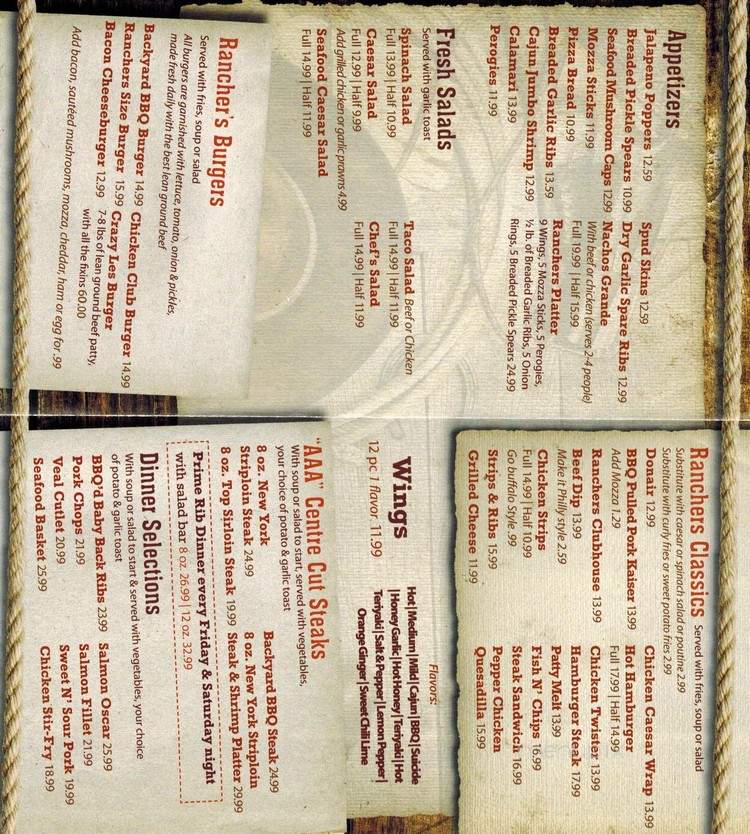 Appetizers
Jalapeno Poppers 12.59
Breaded Pickle Spears 10.99
Seafood Mushroom Caps 12.99
Mozza Sticks 11.99
Pizza Bread 10.99
Breaded Garlic Ribs 13.59
Cajun Jumbo Shrimp 12.99
Calamari 13.99
Perogies 11.99
Spud Skins 12.59
Dry Garlic Spare Ribs 12.99
Nachos Grande
With beef or chicken (serves 2-4 people)
Full 19.99 | Half 15.99
Ranchers Platter
9 Wings, 5 Mozza Sticks, 5 Perogies,
½ lb. of Breaded Garlic Ribs, 5 Onion
Rings, 5 Breaded Pickle Spears 24.99
Fresh Salads
Served with garlic toast
Spinach Salad
Full 13.99 | Half 10.99
Caesar Salad
Full 12.99 | Half 9.99
Add grilled chicken or garlic prawns 4.99
Seafood Caesar Salad
Full 14.99 | Half 11.99
Taco Salad Beef or Chicken
Full 14.99 | Half 11.99
Chef's Salad
Full 14.99 | Half 11.99
Rancher's Burgers
Served with fries, soup or salad
All burgers are garnished with lettuce, tomato, onion & pickles,
made fresh daily with the best lean ground beef
Backyard BBQ Burger 14.99
Ranchers Size Burger 15.99
Bacon Cheeseburger 12.99
Chicken Club Burger 14.99
Crazy Les Burger
7-8 lbs of lean ground beef patty,
with all the fixins 60.00
Add bacon, sautéed mushrooms, mozza, cheddar, ham or egg for .99
Ranchers Classics Served with fries, soup or salad
Substitute with caesar or spinach salad or poutine 2.99
Substitute with curly fries or sweet potato fries 2.99
Donair 12.99
BBQ Pulled Pork Kaiser 13.99
Add Mozza 1.29
Ranchers Clubhouse 13.99
Beef Dip 13.99
Make it Philly style 2.59
Chicken Strips
Full 14.99 | Half 10.99
Go buffalo Style .99
Strips & Ribs 15.99
Grilled Cheese 11.99
Chicken Caesar Wrap 13.99
Hot Hamburger
Full 17.99 | Half 14.99
Chicken Twister 13.99
Hamburger Steak 17.99
Patty Melt 13.99
Fish N' Chips 16.99
Steak Sandwich 16.99
Pepper Chicken
Quesadilla 15.99
Wings
12 pc 1 flavor 11.99
Flavors:
Hot | Medium | Mild | Cajun | BBQ | Suicide
| Honey Garlic | Hot Honey | Teriyaki | Hot
Teriyaki | Salt & Pepper | Lemon Pepper |
Orange Ginger | Sweet Chili Lime
"AAA" Centre Cut Steaks
With soup or salad to start, served with vegetables,
your choice of potato & garlic toast
8 oz. New York
Striploin Steak 24.99
8 oz. Top Sirloin Steak 19.99
Backyard BBQ Steak 24.99
8 oz. New York Striploin
Steak & Shrimp Platter 29.99
Prime Rib Dinner every Friday & Saturday night
with salad bar 8 oz. 26.99 | 12 oz. 32.99
Dinner Selections
With soup or salad to start & served with vegetables, your choice
of potato & garlic toast
BBQ'd Baby Back Ribs 23.99
Pork Chops 21.99
Veal Cutlet 20.99
Seafood Basket 25.99
Salmon Oscar 25.99
Salmon Fillet 21.99
Sweet N' Sour Pork 19.99
Chicken Stir-Fry 18.99